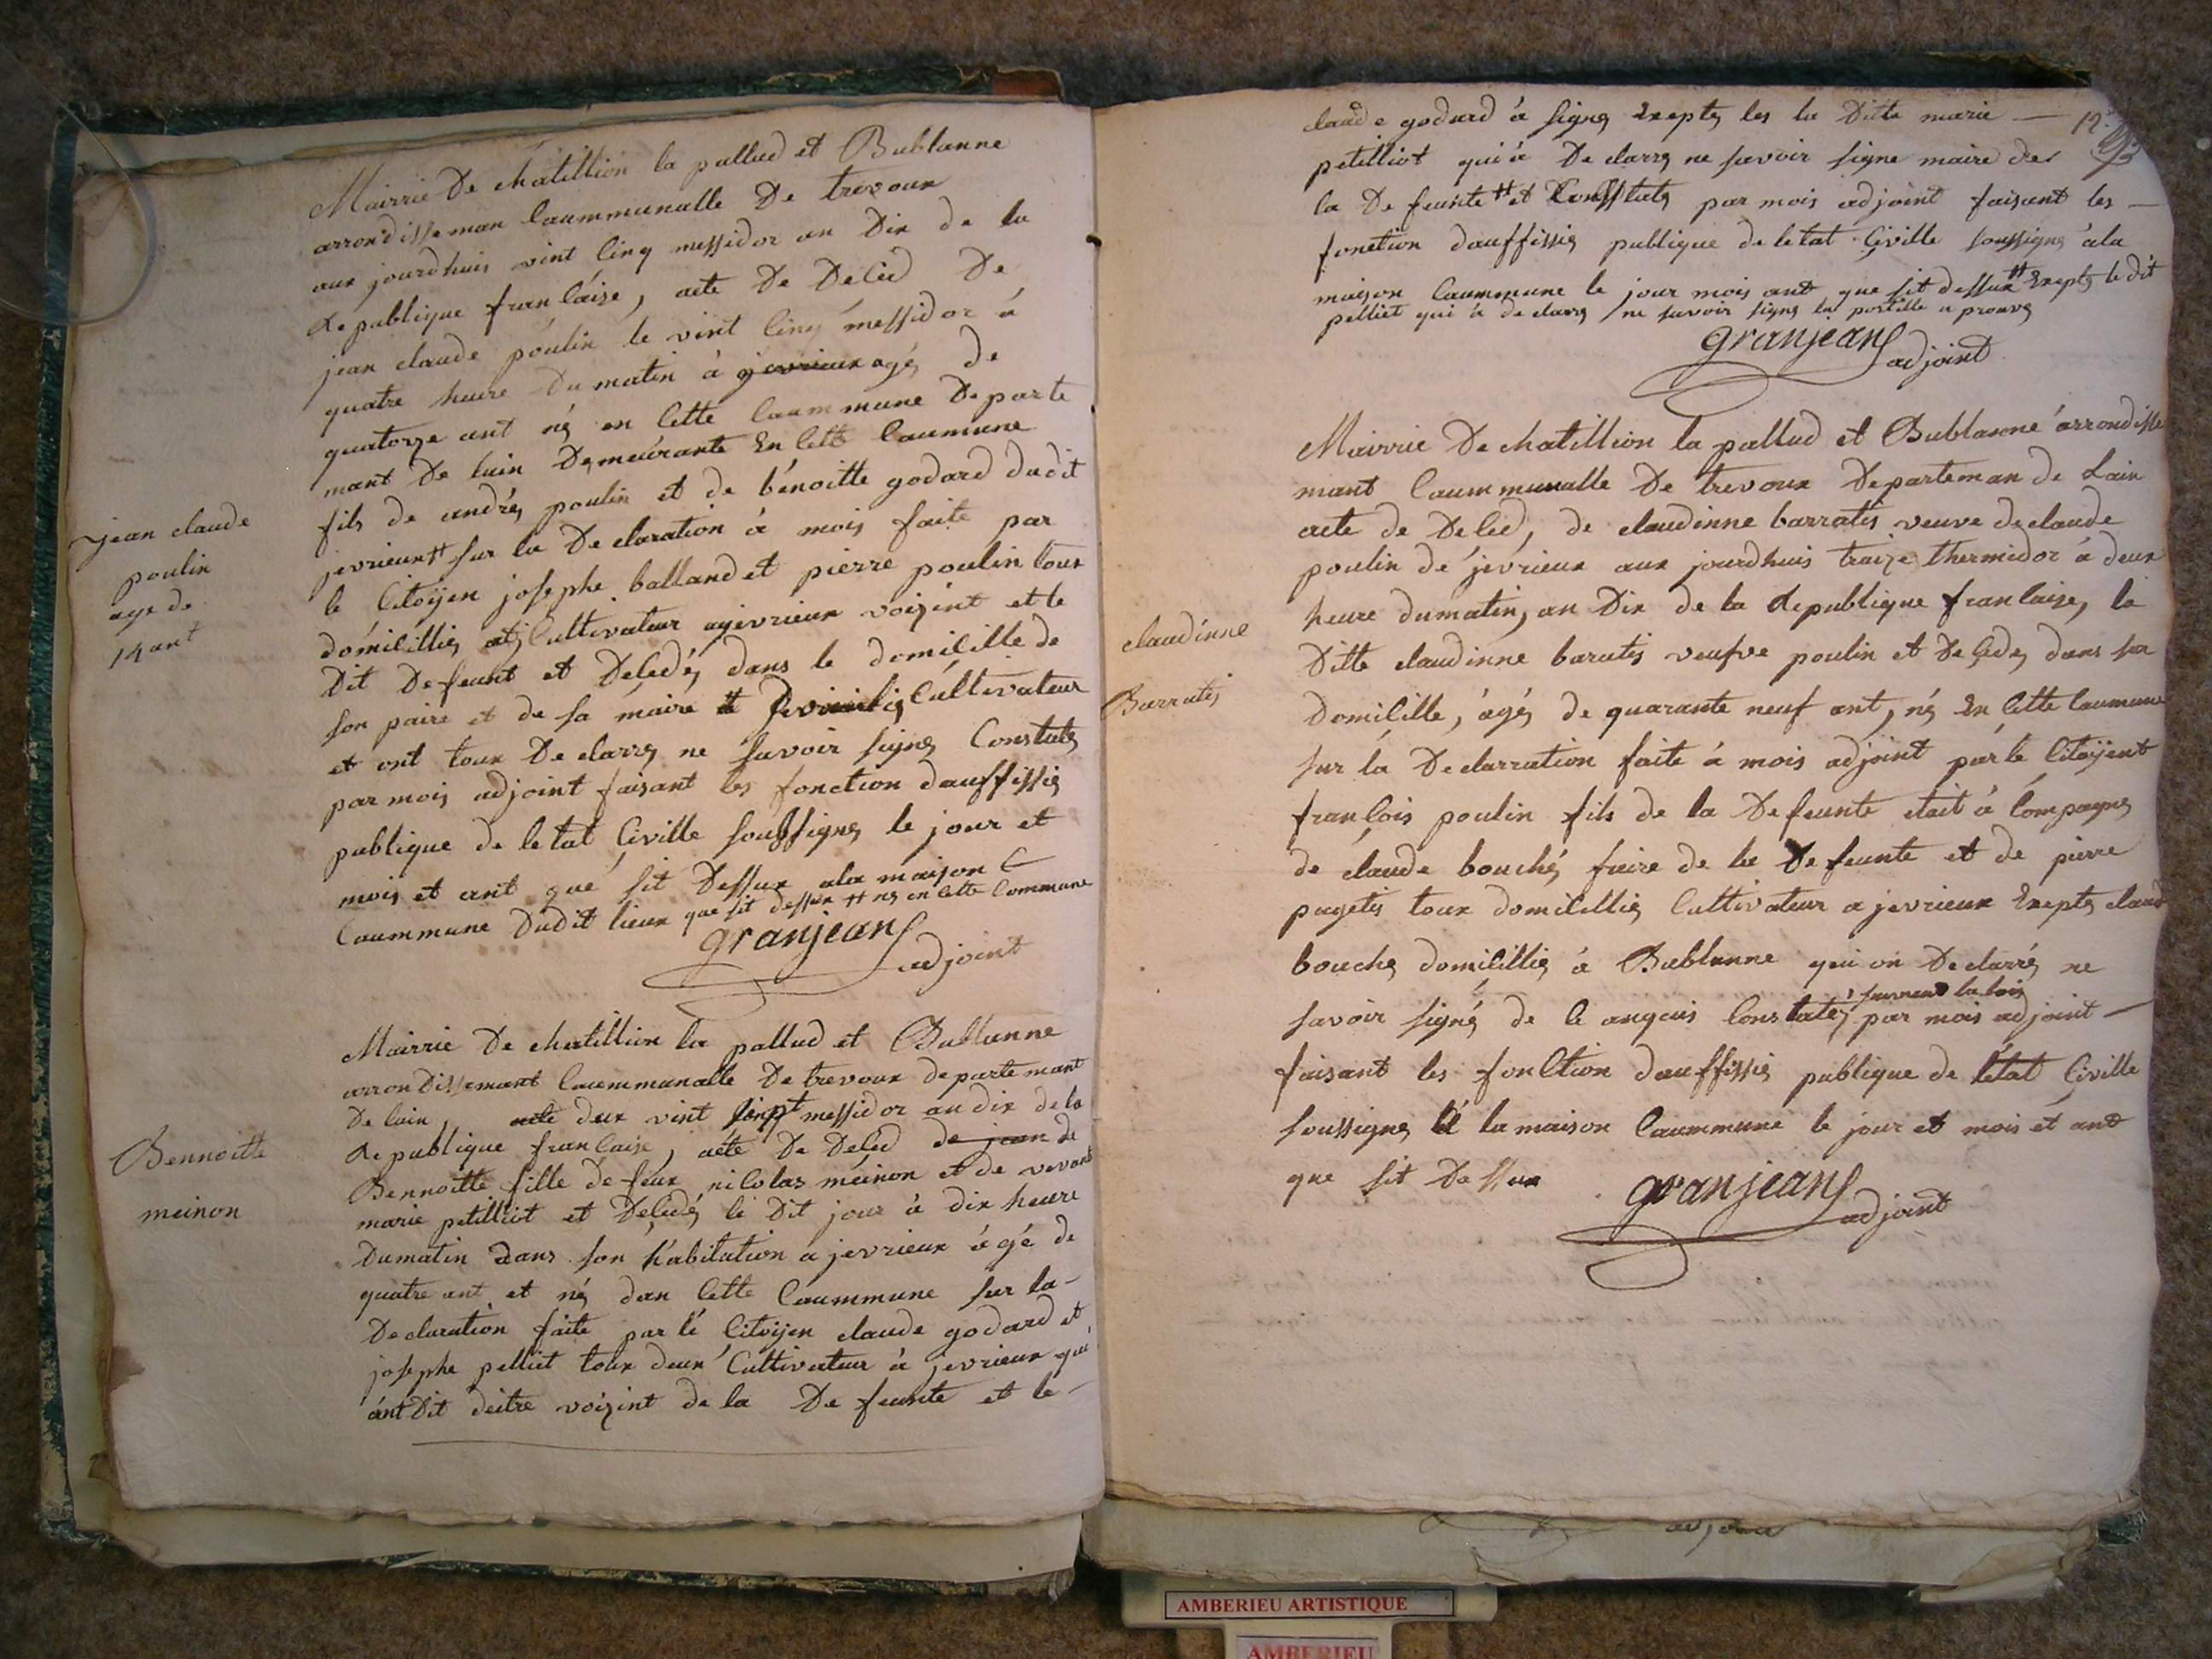 Mairrie De chatillion la pallud et Bublanne
arrondisseman Caummunalle De trevoux
aux jourdhuis vint Cinq messidor an Dix de la
Republique francáise, acte De Deléd De
jean claude poulin le vint Cinq messidor á
quatre heure Du matin á jevrieux agé, de
quatorze ant né en Cette Caummune Departe
mant De lain Demeurante En Cette Caumune
fils de andré, poulin et de bénoitte godard dudit
jevrieux # sur la Declaration á mois faite par
le Citoÿen josephe balland et pierre poulin tous
domicillié, Cultivateur ajevrieux voizint et le
Dit Defeunt et Delédé, dans le domicille de
son paire et de sa máire Cultivateur
et ont toux De clarré, ne savoir signé Constaté
par mois adjoint faisant les fonction dauffissié
publique de letat Civille soussigné, le jour et
mois et ant que sit Dessux ala maison C
Caummune Dudit lieux que sit dessux # né en Cette Commune
granjean
adjoint
jean claude
poulin
age de
14 ant
Mairrie De chatillion la pallud et Bublanne
arrondissemant Caummunalle De trevoux departemant
De lain, acte dux vint sinpt messidor an dix de la
Republique francaise, acte De Deléd de jean de
Bennoitte fille de feux nicolas méinon et de vivant
marie petilliot et Delédé, le Dit jour á dix heure
Dumatin dans son habitation a jevrieux ágé de
quatre ant et né dan Cette Caummune sur la -
Declaration faite par lé Citoÿen claude godard et
josephe pelliet toux deux Cultivateur á jevrieux qui
ánt Dit deitre voizint de la De feunte et le -
Bennoitte
meinon
12
claude godard á signé Exepté les la Ditte marie —
petilliot qui á De clarré ne savoir signe maire de
la De feunte # et Constaté par mois adjoint faisant les —
fonction dauffissié publique de letat Civille soussigné ála
maison Caummune le jour mois ant que sit dessux # Exepté le dit
pelliet qui á de clarré ne savoir signé la postille a prouvé
granjean
adjoint
Mairrie De chatillion la pallud et Bublanne arrondisse
mant Caummunalle De trevoux Departeman de Lain
acte de Deléd, de claudinne barratié veuve de claude
poulin de jévrieux aux jourdhuis traize thermidor á deux
heure dumatin, an Dix de la Republique francaise, la
Ditte claudinne baratié veufve poulin et Delédé, dans sa
Domicille, ágé, de quarante neuf ant, né En Cette Caumune
sur lá Declarration faite á mois adjoint par le Citoÿent
francois poulin fils de la Defeunte etait á Compagné
de claude bouché, freire de la De feunte et de pierre
pugetié toux domicillié, Cultivateur a jevrieux Exepté claud
bouché domicillié á Bublanne qui on Declarré, ne
savoir signé de le anquis Constaté, par mois adjoint —
faisant les fonction dauffissié publique de létat Civille
soussigné á la maison Caummune le jour et mois et ant
que sit Dessux
granjean
adjoint
claudinne
Barratié
AMBERIEU ARTISTIQUE
AMBERIEU